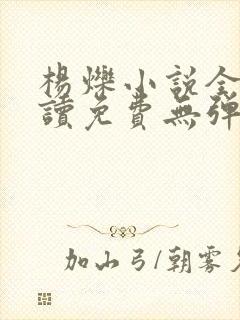 楊爍小說全
讀免費無彈
加山弓/朝雾